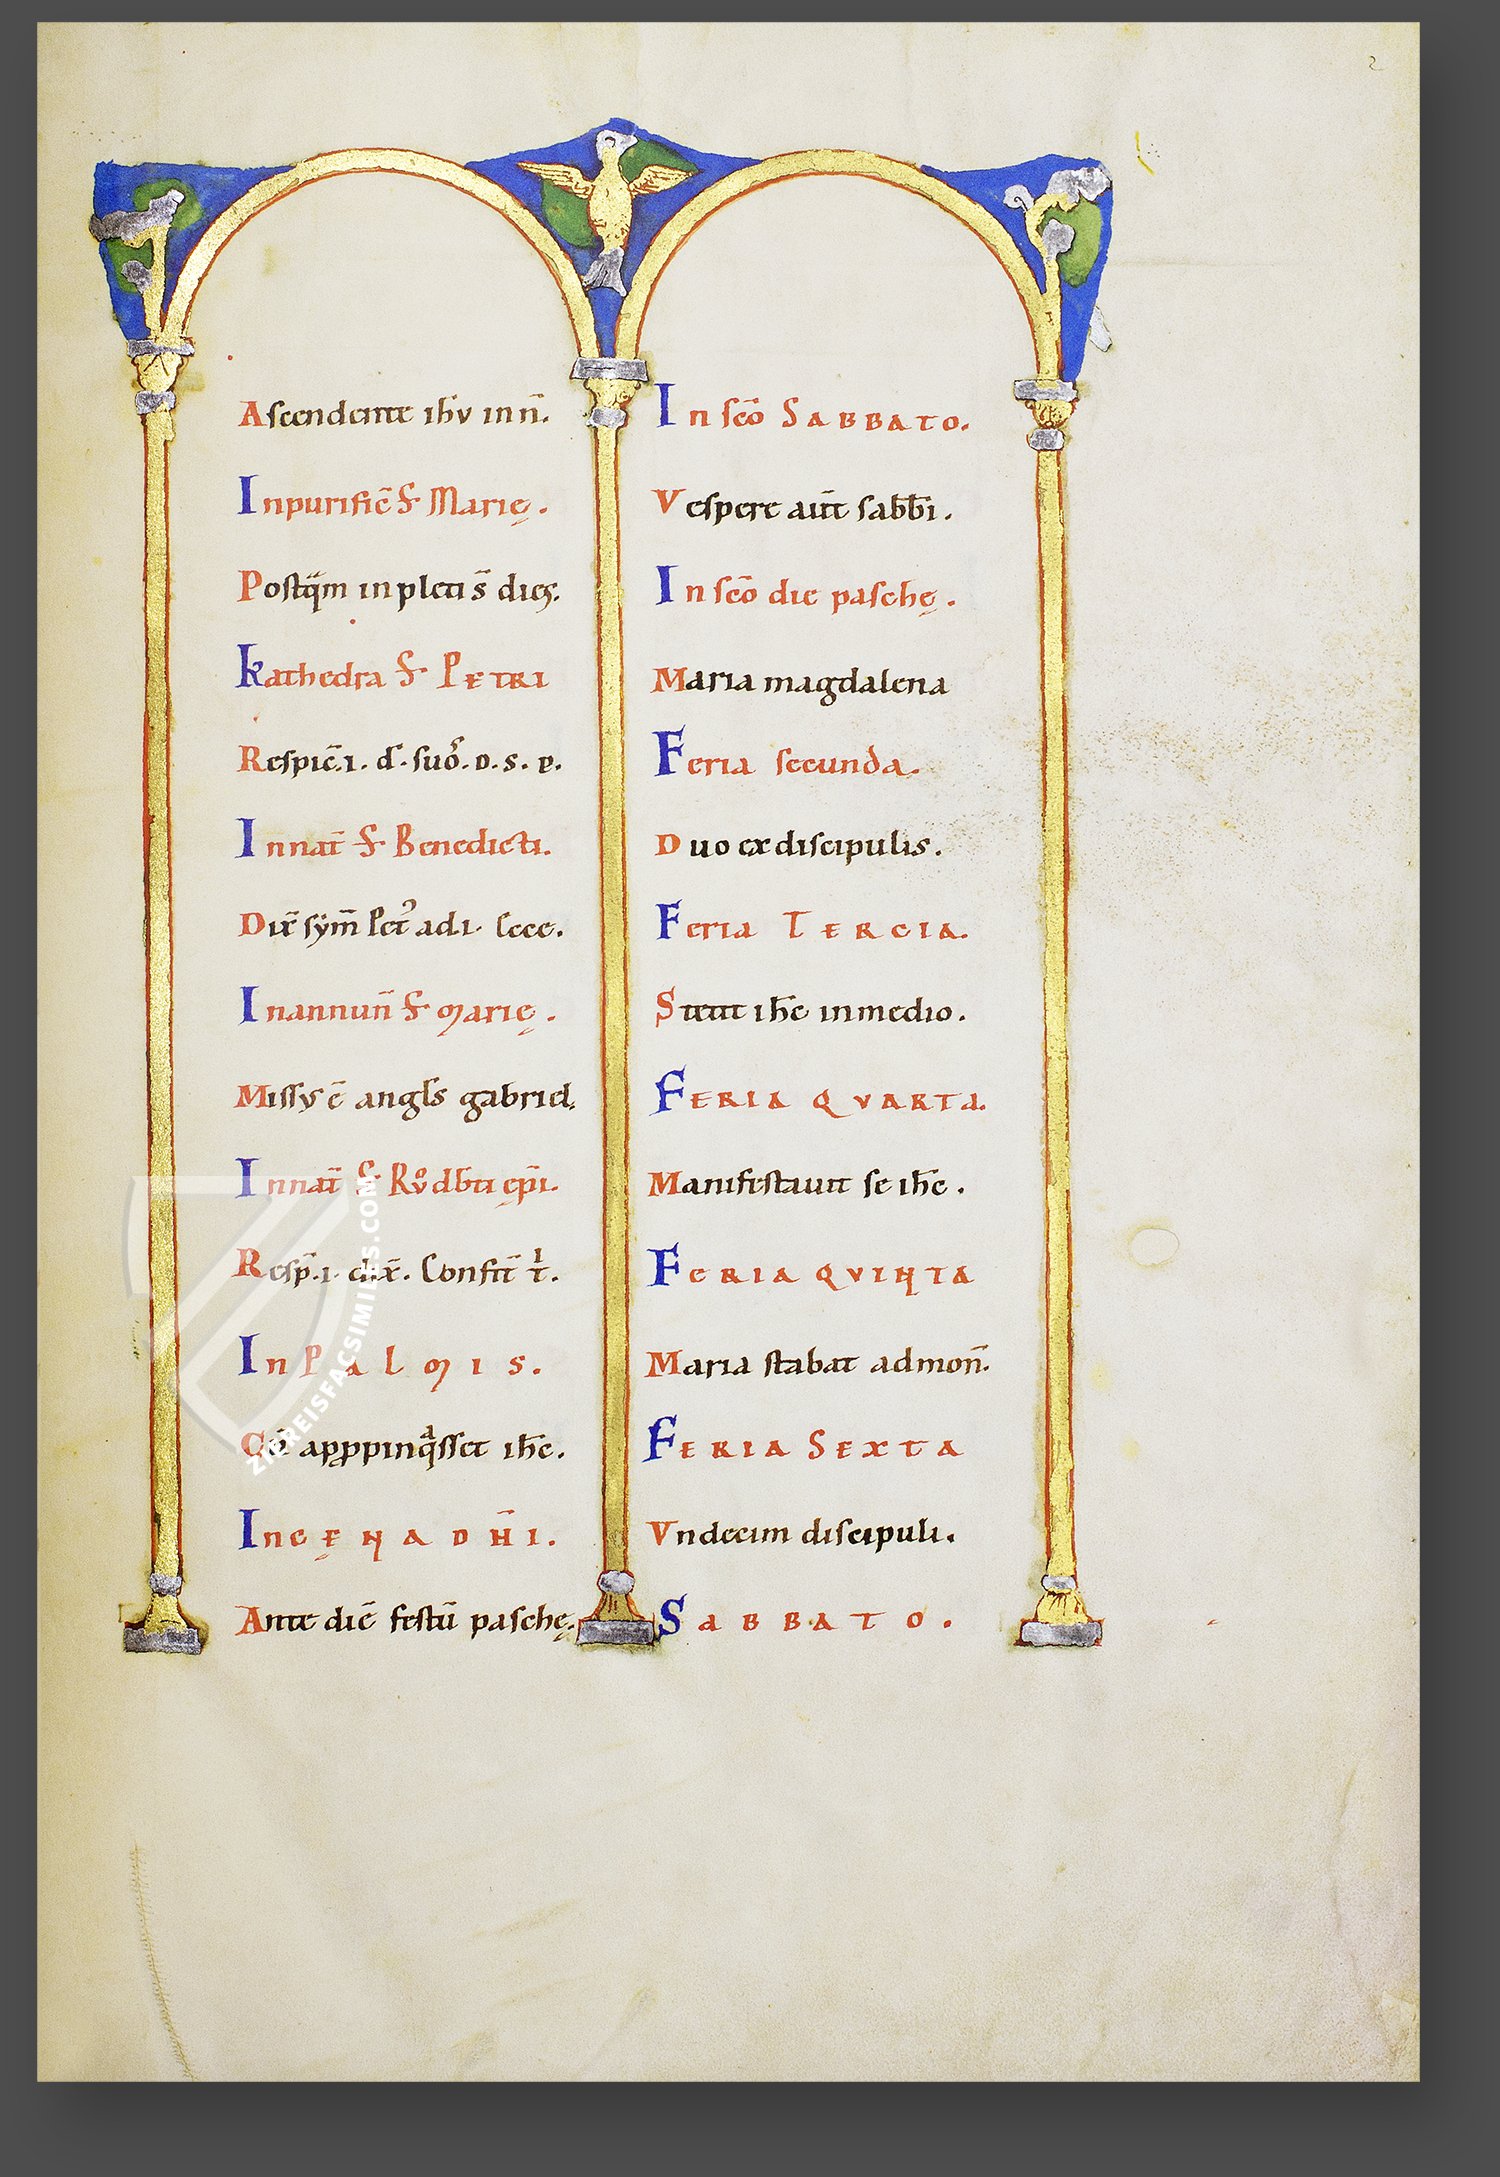 2
Ascendente ihū in n̄.
Inpurific̄ S Marię.
Postq̄m inpleti s̄ dies.
Kathedra S PETRI
Respic̄.i. d̄. suoˢ. o. s. p.
In nat̄ S Benedicti.
Dix̄ sym̄ Pet᷒ ad.i. Ecce.
In annun̄ S Marię.
Missus ē angls gabriel.
In nat̄ S Rͦvdb̄ti ep̄i.
Resp̄.i. dix̄. Confit̄ t̄ⁱ.
In PalMIS.
Cū appropinqᵃsset ih̄c.
In CĘNA DN̄I.
Ante diē festū paschę.
In sc̄o SABBATO.
Vespere aut̄ sabb̄i.
In sc̄o die paschę.
Maria magdalena
Feria secunda.
Duo ex discipulis.
Feria TERCIA.
Stetit ih̄c inmedio.
FERIA QVARTA.
Manifestavit se ih̄c.
FERIA QVINTA
Maria stabat admon̄.
FERIA SEXTA
Vndecim discipuli.
SABBATO.
ZIEREISFACSIMILES.COM